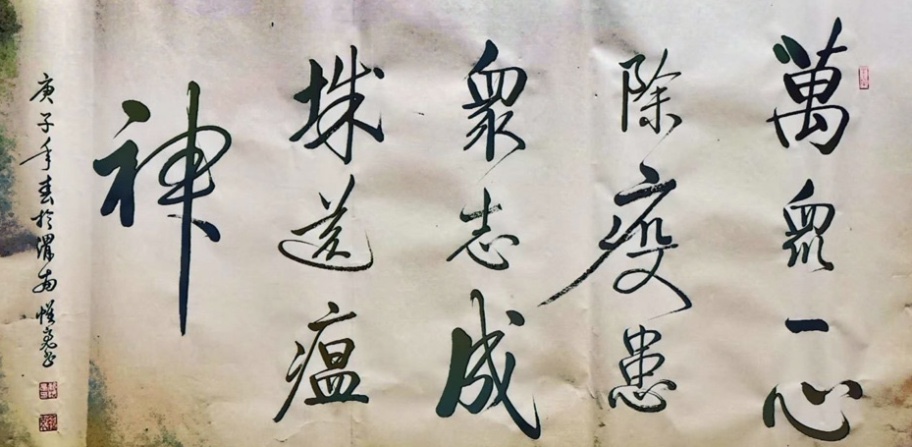 萬眾一心
除疫患
眾志成
城送瘟
神
庚子年春於渭南